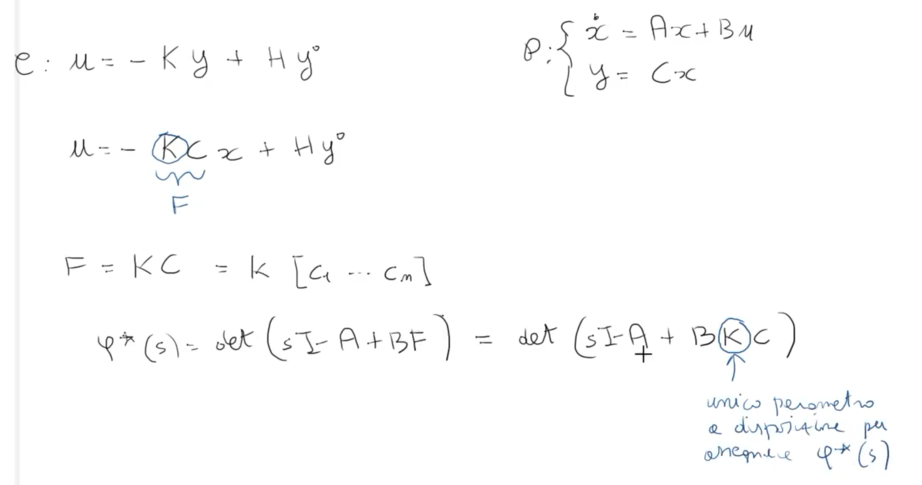 C: u = - K y + H y°
P: { ẋ = Ax + Bu
y = Cx
u = - K C x + H y°
F
F = KC = k [c₁ ... cₙ]
φ*(s) = det (sI - A + BF) = det (sI - A + BKC)
unico parametro
a disposizione per
assegnare φ*(s)